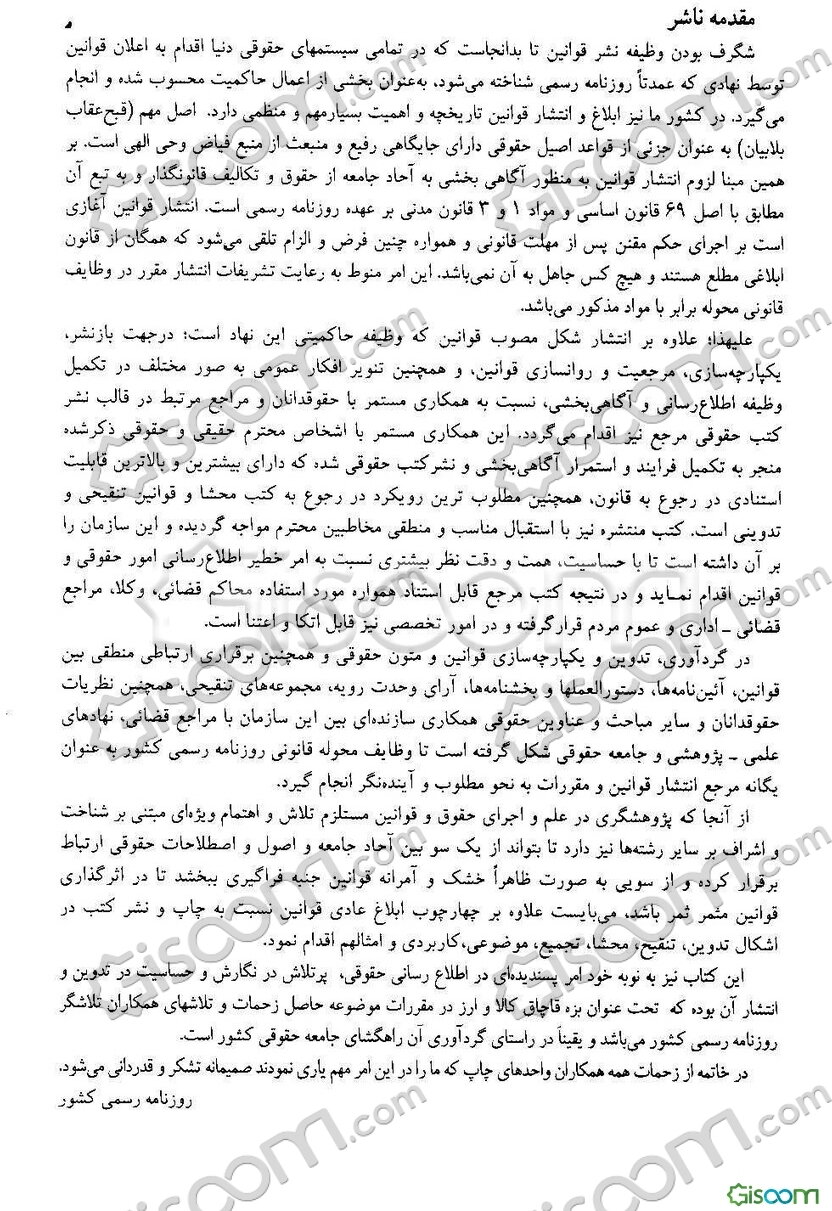 مقدمه ناشر
شگرف بودن وظیفه نشر قوانین تا بدانجاست که در تمامی سیستمهای حقوقی دنیا اقدام به اعلان قوانین
توسط نهادی که عمدتاً روزنامه رسمی شناخته می‌شود، به‌عنوان بخشی از اعمال حاکمیت محسوب شده و انجام
می‌گیرد. در کشور ما نیز ابلاغ و انتشار قوانین تاریخچه و اهمیت بسیارمهم و منظمی دارد. اصل مهم (قبح‌عقاب
بلابیان) به عنوان جزئی از قواعد اصیل حقوقی دارای جایگاهی رفیع و منبعث از منبع فیاض وحی الهی است. بر
همین مبنا لزوم انتشار قوانین به منظور آگاهی بخشی به آحاد جامعه از حقوق و تکالیف قانونگذار و به تبع آن
مطابق با اصل ۶۹ قانون اساسی و مواد ۱ و ۳ قانون مدنی بر عهده روزنامه رسمی است. انتشار قوانین آغازی
است بر اجرای حکم مقنن پس از مهلت قانونی و همواره چنین فرض و الزام تلقی می‌شود که همگان از قانون
ابلاغی مطلع هستند و هیچ کس جاهل به آن نمی‌باشد. این امر منوط به رعایت تشریفات انتشار مقرر در وظایف
قانونی محوله برابر با مواد مذکور می‌باشد.
علیهذا؛ علاوه بر انتشار شکل مصوب قوانین که وظیفه حاکمیتی این نهاد است؛ درجهت بازنشر،
یکپارچه‌سازی، مرجعیت و روانسازی قوانین، و همچنین تنویر افکار عمومی به صور مختلف در تکمیل
وظیفه اطلاع‌رسانی و آگاهی‌بخشی، نسبت به همکاری مستمر با حقوقدانان و مراجع مرتبط در قالب نشر
کتب حقوقی مرجع نیز اقدام می‌گردد. این همکاری مستمر با اشخاص محترم حقیقی و حقوقی ذکرشده
منجر به تکمیل فرایند و استمرار آگاهی‌بخشی و نشرکتب حقوقی شده که دارای بیشترین و بالاترین قابلیت
استنادی در رجوع به قانون، همچنین مطلوب ترین رویکرد در رجوع به کتب محشا و قوانین تنقیحی و
تدوینی است. کتب منتشره نیز با استقبال مناسب و منطقی مخاطبین محترم مواجه گردیده و این سازمان را
بر آن داشته است تا با حساسیت، همت و دقت نظر بیشتری نسبت به امر خطیر اطلاع‌رسانی امور حقوقی و
قوانین اقدام نماید و در نتیجه کتب مرجع قابل استناد همواره مورد استفاده محاکم قضائی، وکلا، مراجع
قضائی ـ اداری و عموم مردم قرارگرفته و در امور تخصصی نیز قابل اتکا و اعتنا است.
در گردآوری، تدوین و یکپارچه‌سازی قوانین و متون حقوقی و همچنین برقراری ارتباطی منطقی بین
قوانین، آئین‌نامه‌ها، دستورالعملها و بخشنامه‌ها، آرای وحدت رویه، مجموعه‌های تنقیحی، همچنین نظریات
حقوقدانان و سایر مباحث و عناوین حقوقی همکاری سازنده‌ای بین این سازمان با مراجع قضائی، نهادهای
علمی ـ پژوهشی و جامعه حقوقی شکل گرفته است تا وظایف محوله قانونی روزنامه رسمی کشور به عنوان
یگانه مرجع انتشار قوانین و مقررات به نحو مطلوب و آینده‌نگر انجام گیرد.
از آنجا که پژوهشگری در علم و اجرای حقوق و قوانین مستلزم تلاش و اهتمام ویژه‌ای مبتنی بر شناخت
و اشراف بر سایر رشته‌ها نیز دارد تا بتواند از یک سو بین آحاد جامعه و اصول و اصطلاحات حقوقی ارتباط
برقرار کرده و از سویی به صورت ظاهراً خشک و آمرانه قوانین جنبه فراگیری ببخشد تا در اثرگذاری
قوانین مثمر ثمر باشد، می‌بایست علاوه بر چهارچوب ابلاغ عادی قوانین نسبت به چاپ و نشر کتب در
اشکال تدوین، تنقیح، محشا، تجمیع، موضوعی،کاربردی و امثالهم اقدام نمود.
این کتاب نیز به نوبه خود امر پسندیده‌ای در اطلاع رسانی حقوقی، پرتلاش در نگارش و حساسیت در تدوین و
انتشار آن بوده که تحت عنوان بزه قاچاق کالا و ارز در مقررات موضوعه حاصل زحمات و تلاشهای همکاران تلاشگر
روزنامه رسمی کشور می‌باشد و یقیناً در راستای گردآوری آن راهگشای جامعه حقوقی کشور است.
در خاتمه از زحمات همه همکاران واحدهای چاپ که ما را در این امر مهم یاری نمودند صمیمانه تشکر و قدردانی می‌شود.
روزنامه رسمی کشور
Gisoom